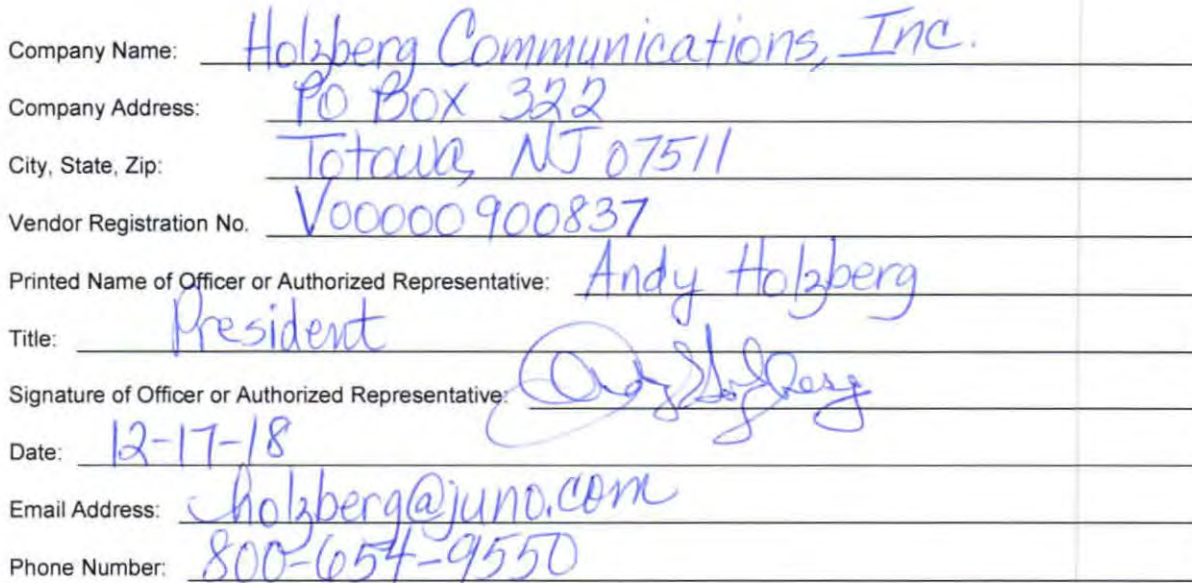 Company Name: Holzberg Communications, Inc.
Company Address: PO Box 322
City, State, Zip: Totowa, NJ 07511
Vendor Registration No. V00000900837
Printed Name of Officer or Authorized Representative: Andy Holzberg
Title: President
Signature of Officer or Authorized Representative: Andy Holzberg
Date: 12-17-18
Email Address: holzberg@juno.com
Phone Number: 800-654-9550